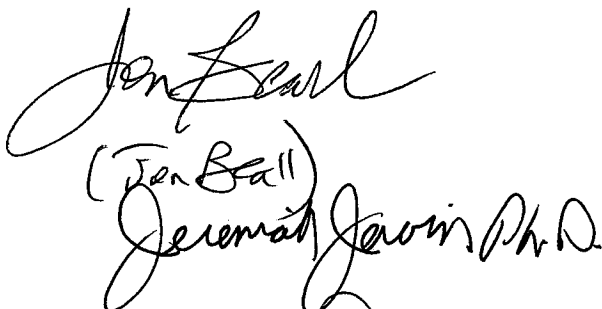 Jen Beall
(Jen Beall)
Jeremiah Jarvin Ph.D.